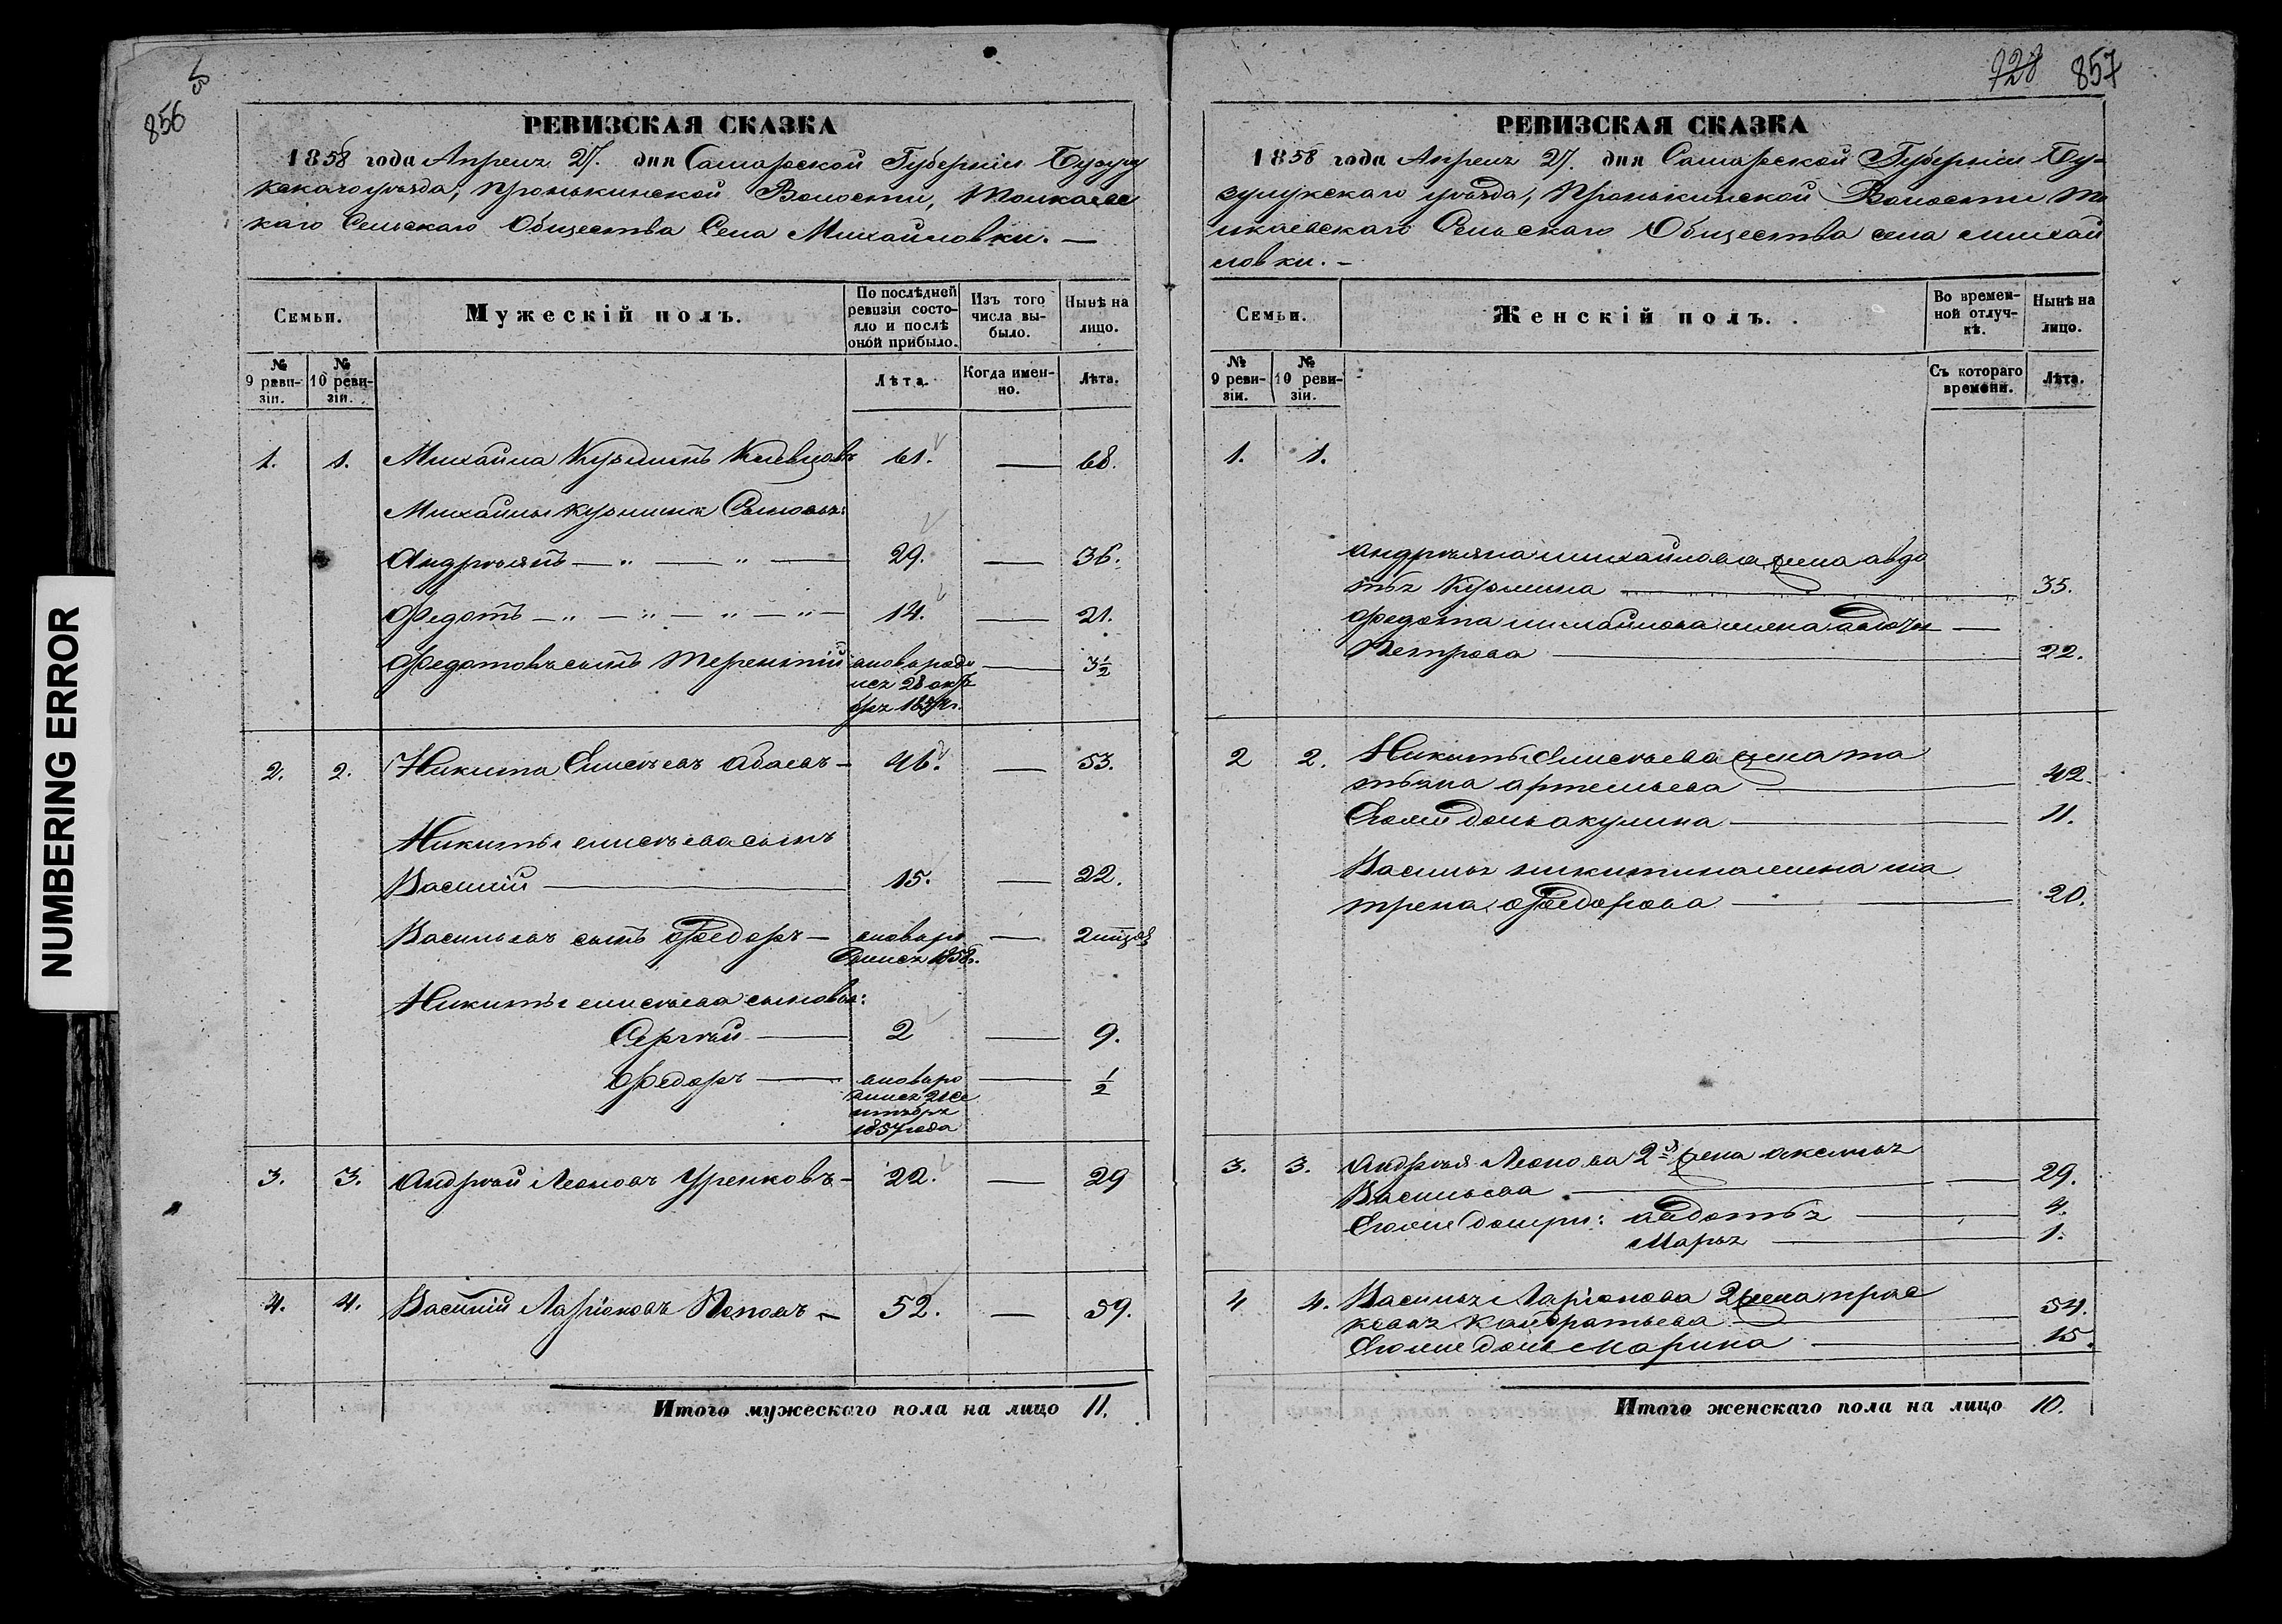 856
NUMBERING ERROR
РЕВИЗСКАЯ СКАЗКА
1858 года Апреля 27. дня Самарской Губерніи Бузулу
кскаго уѣзда, Пронькинской Волости, Толкаевс
каго Сельскаго Общества Села Михайловки. —
Семьи.
Мужескій полъ.
По послѣдней ревизіи состояло и послѣ оной прибыло.
Изъ того числа выбыло.
Нынѣ на лицо.
№ 9 ревизіи.
№ 10 ревизіи.
Лѣта.
Когда именно.
Лѣта.
1. 1. Михайла Кузьминъ 61. — 68.
Михайлы Кузмина Сыновья:
Андреянъ — „ — „ — 29. — 36.
Федотъ — „ — „ — „ — „ — 14. — 21.
Федотовъ сынъ Терентій вновь роди — 3½
лся 28 октя
бря 1854 г.
2. 2. Никита Елисѣевъ Абаевъ — 46. — 53.
Никиты елисѣева сынъ
Василий — 15. — 22.
Васильевъ сынъ Федоръ — вновь ро — 2
дился 1858.
Никиты елисѣева сыновья:
Сергѣй — 2 — 9.
Федоръ — вновь ро — ½
дился 21 Се
нтября
1857 года
3. 3. Андрѣй Леоновъ Уренковъ — 22. — 29
4. 4. Василій Ларіоновъ Поповъ — 52. — 59.
Итого мужескаго пола на лицо 11.
728 857
РЕВИЗСКАЯ СКАЗКА
1858 года Апреля 27. дня Самарской Губерніи Бу-
зулукскаго уѣзда, Пронькинской Волости То
лкаевскаго Сельскаго Общества села михай
ловки. —
Семьи.
Женскій полъ.
Во временной отлучкѣ.
Нынѣ на лицо.
№ 9 ревизіи.
№ 10 ревизіи.
Съ котораго времени.
Лѣта.
1. 1.
андреяна михайлова жена авдо
тья Кузмина — 35.
Федота михайлова жена —
Петрова — 22.
2 2. Никиты Елисѣева жена та
тьяна артемьева — 42.
Егоже дочь акулина — 11.
Василья никитина жена ма
трена Федорова — 20.
3. 3. Андрѣя Леонова 2я жена аксинья
Васильева — 29.
Егоже дочери: авдотья — 4.
Марья — 1.
4 4. Василья Ларіонова 2 жена прас
ковья Кандратьева — 54.
Егоже дочь Марина — 15.
Итого женскаго пола на лицо 10.